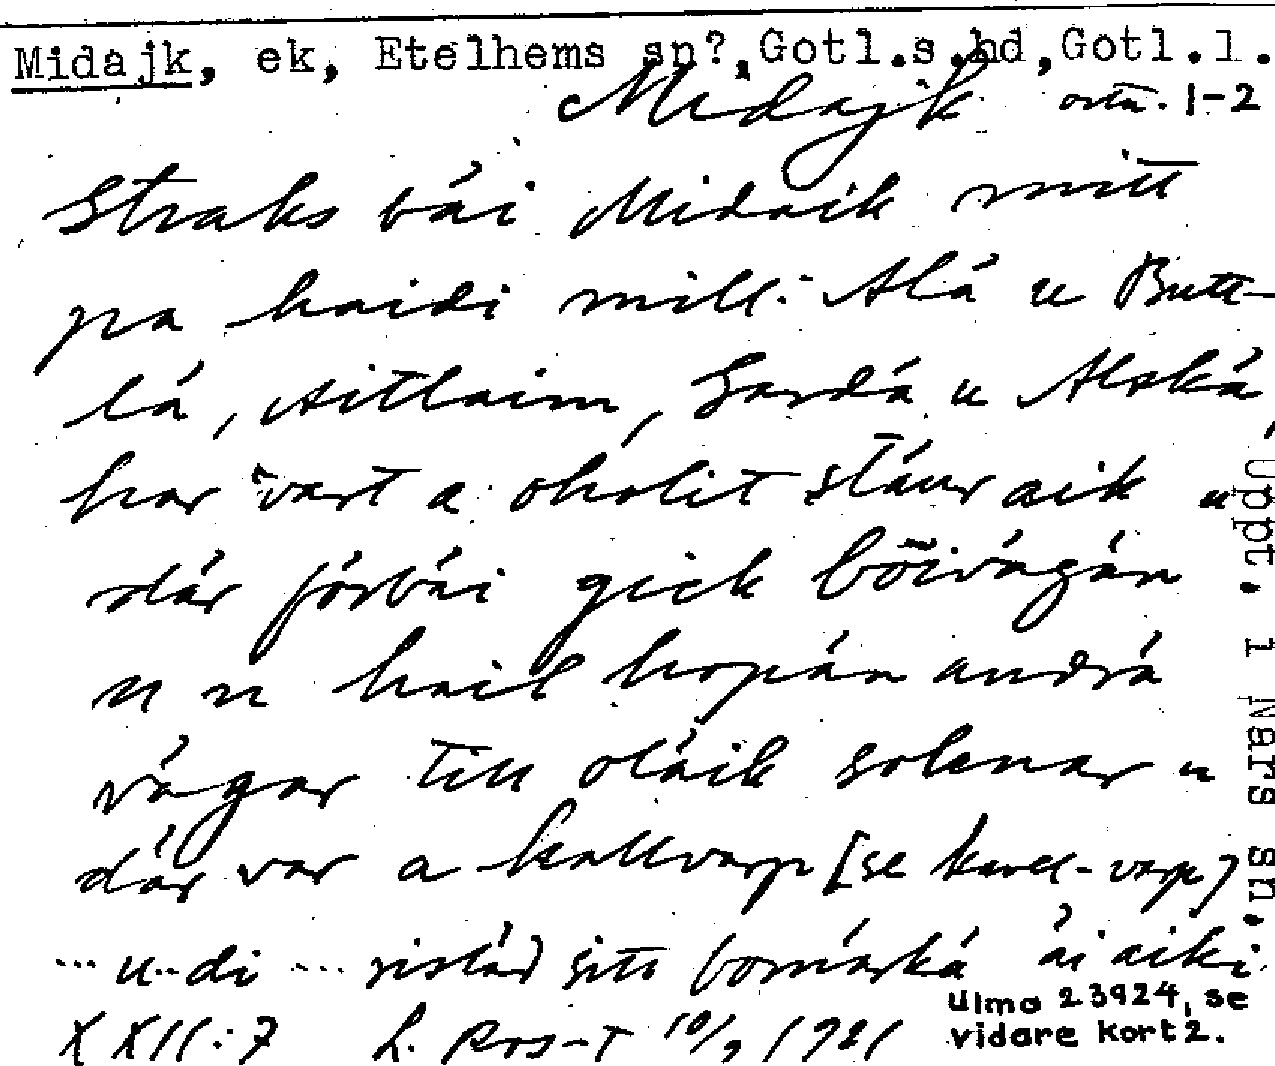 Midajk, ek, Etelhems sn?, Gotl.s.hd, Gotl.l.
Midajk ortn. 1-2
Straks bái Midaik mitt
pa haidi mill: Alá u Butt-
lá, Aitlaim, Gardá u Alská,
har vart a okolit stáur aik u
dár fórbái gick böivágán
u u hail hopán andrá
vágar till oláik soknar u
dár var a kallvarp [se kvarl-varp]
... u di ... ristád sitt bomárká ái aiki
XXII:7 L. Ros-T 10/9 1921
Ulma 23924, se
vidare kort 2.
Uppt. i Nars sn.